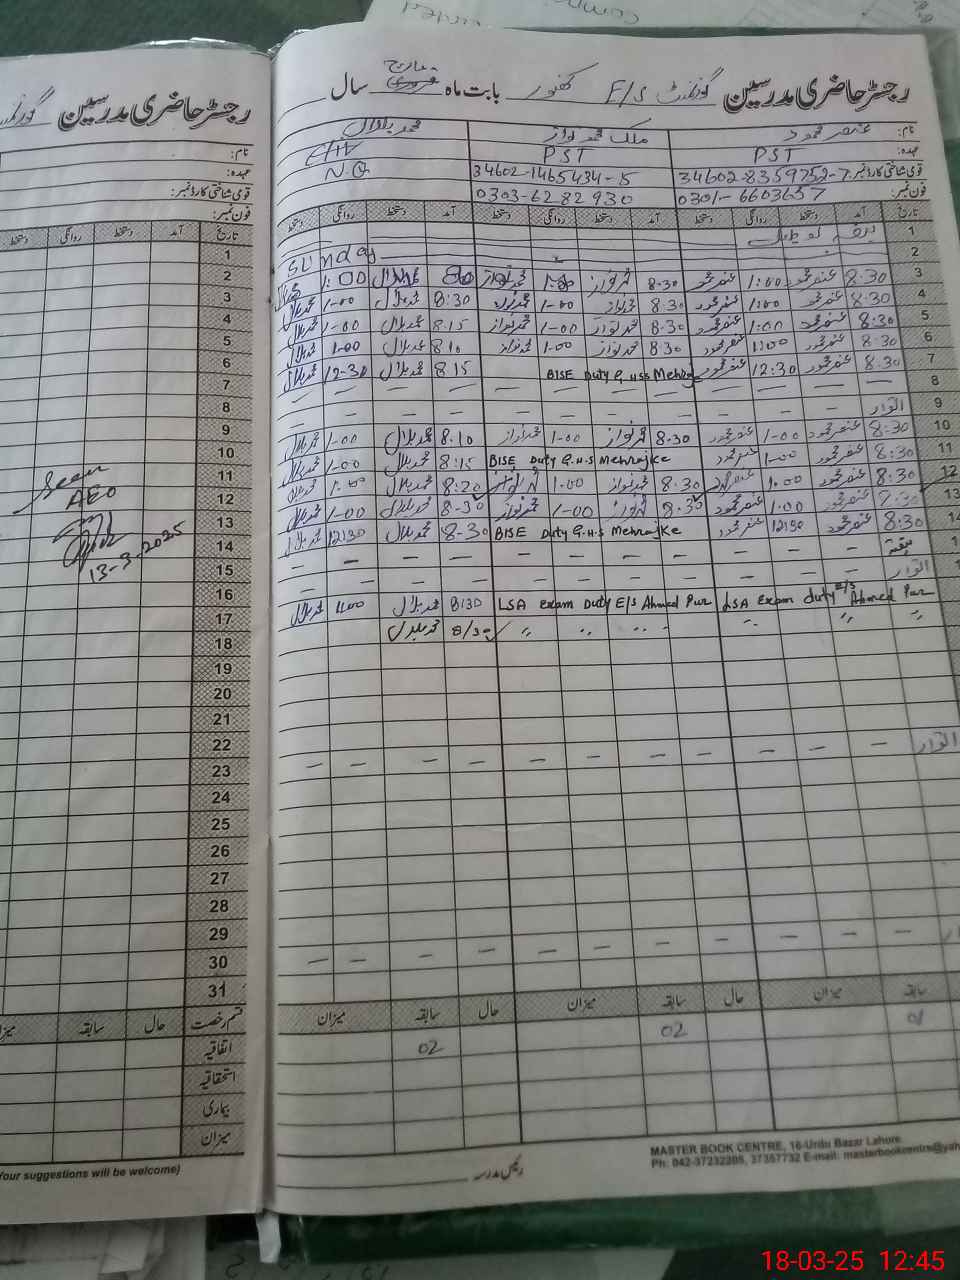 رجسٹر حاضری مدرسین گورنمنٹ E/S کھنور بابت ماہ مارچ سال
نام: عنصر محمود ملک محمد نواز محمد بلال
عہدہ: PST PST
قومی شناختی کارڈ نمبر: 34602-8359752-7 34602-1465434-5 N.Q
فون نمبر: 0301-6603657 0303-6282930
تاریخ آمد دستخط روانگی دستخط آمد دستخط روانگی دستخط آمد دستخط روانگی دستخط
1
2 Sunday
3 8:30 عنصر محمود 1:00 عنصر محمود 8.30 محمد نواز 1-00 محمد نواز محمد بلال 1:00
4 8:30 عنصر محمود 1:00 عنصر محمود 8.30 محمد نواز 1-00 محمد نواز 8:30 محمد بلال 1-00 محمد بلال
5 8:30 عنصر محمود 1:00 عنصر محمود 8.30 محمد نواز 1-00 محمد نواز 8.15 محمد بلال 1-00 محمد بلال
6 8:30 عنصر محمود 1:00 عنصر محمود 8.30 محمد نواز 1-00 محمد نواز 8.10 محمد بلال 1.00 محمد بلال
7 8:30 عنصر محمود 12:30 عنصر محمود BISE Duty G.HSS Mehraj 8.15 محمد بلال 12-30 محمد بلال
8 — — — — — — — — — —
9 اتوار — — — — — — — — —
10 8:30 عنصر محمود 1-00 عنصر محمود 8.30 محمد نواز 1-00 محمد نواز 8.10 محمد بلال 1-00 محمد بلال
11 8:30 عنصر محمود 1-00 عنصر محمود BISE Duty G.H.S Mehrajke 8:15 محمد بلال 1-00 محمد بلال
12 8:30 عنصر محمود 1:00 عنصر محمود 8.30 محمد نواز 1.00 محمد نواز 8:20 محمد بلال 1:00 محمد بلال
13 8:30 عنصر محمود 1:00 عنصر محمود 8.30 محمد نواز 1-00 محمد نواز 8-30 محمد بلال 1-00 محمد بلال
14 8:30 عنصر محمود 12:30 عنصر محمود BISE Duty G.H.S Mehrajke 8-30 محمد بلال 12:30 محمد بلال
ہفتہ — — — — — — — — —
اتوار — — — — — — — — —
LSA Exam duty E/S Ahmed Pur LSA Exam Duty E/S Ahmed Pur 8:30 محمد بلال 1:00 محمد بلال
〃 〃 〃 〃 〃 〃 8:30 محمد بلال
— — — — — — — — — اتوار
— — — — — — — — —
سابقہ میزان حال سابقہ میزان حال سابقہ میزان
01 02 02
رئیس مدرسہ
MASTER BOOK CENTRE, 16-Urdu Bazar Lahore
Ph: 042-37232205, 37357732 E-mail: masterbookcentre@yah
رجسٹر حاضری مدرسین
نام:
عہدہ:
قومی شناختی کارڈ نمبر:
فون نمبر:
تاریخ آمد دستخط روانگی دستخط
1
2
3
4
5
6
7
8
9
10
11
12
13
14
15
16
17
18
19
20
21
22
23
24
25
26
27
28
29
30
31
Seen
AEO
13-3-2025
قسم رخصت حال سابقہ میزان
اتفاقیہ
استحقاقیہ
بیماری
میزان
Your suggestions will be welcome)
18-03-25 12:45